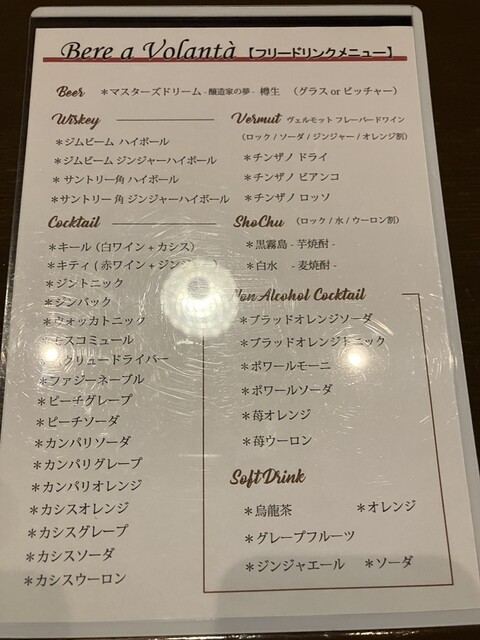 Bere a Volantà 【フリードリンクメニュー】
Beer ＊マスターズドリーム - 醸造家の夢 - 樽生 （グラス or ピッチャー）
Wiskey
＊ジムビーム ハイボール
＊ジムビーム ジンジャーハイボール
＊サントリー角 ハイボール
＊サントリー角 ジンジャーハイボール
Cocktail
＊キール（白ワイン + カシス）
＊キティ（赤ワイン + ジン
＊ジントニック
＊ジンバック
＊ウォッカトニック
＊モスコミュール
クリュードライバー
＊ファジーネーブル
＊ピーチグレープ
＊ピーチソーダ
＊カンパリソーダ
＊カンパリグレープ
＊カンパリオレンジ
＊カシスオレンジ
＊カシスグレープ
＊カシスソーダ
＊カシスウーロン
Vermut ヴェルモット フレーバードワイン
（ロック / ソーダ / ジンジャー / オレンジ割）
＊チンザノ ドライ
＊チンザノ ビアンコ
＊チンザノ ロッソ
ShoChu （ロック / 水 / ウーロン割）
＊黒霧島 - 芋焼酎 -
＊白水 - 麦焼酎 -
Non Alcohol Cocktail
＊ブラッドオレンジソーダ
＊ブラッドオレンジトニック
＊ポワールモーニ
＊ポワールソーダ
＊苺オレンジ
＊苺ウーロン
Soft Drink
＊烏龍茶 ＊オレンジ
＊グレープフルーツ
＊ジンジャエール ＊ソーダ